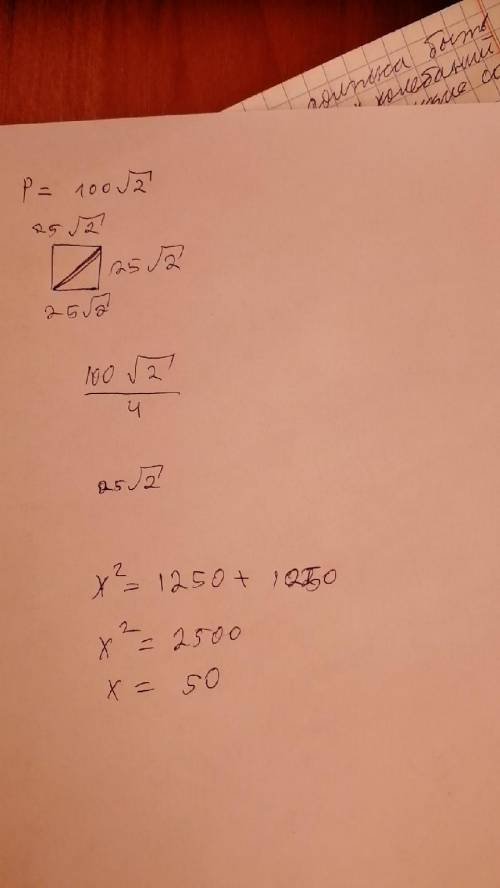 должна быть
колебаний
P = 100√2
25√2
25√2
25√2
100√2
4
25√2
x² = 1250 + 1250
x² = 2500
x = 50